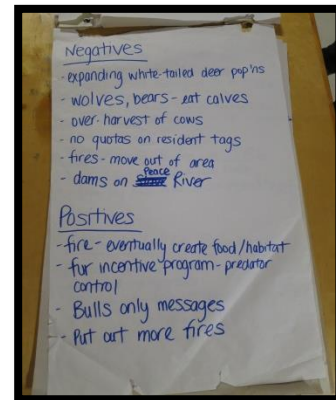 Negatives
- expanding white-tailed deer pop'ns
- wolves, bears - eat calves
- over-harvest of cows
- no quotas on resident tags
- fires - move out of area
- dams on Peace River
Positives
- fire - eventually create food/habitat
- fur incentive program - predator
control
- Bulls only messages
- Put out more fires